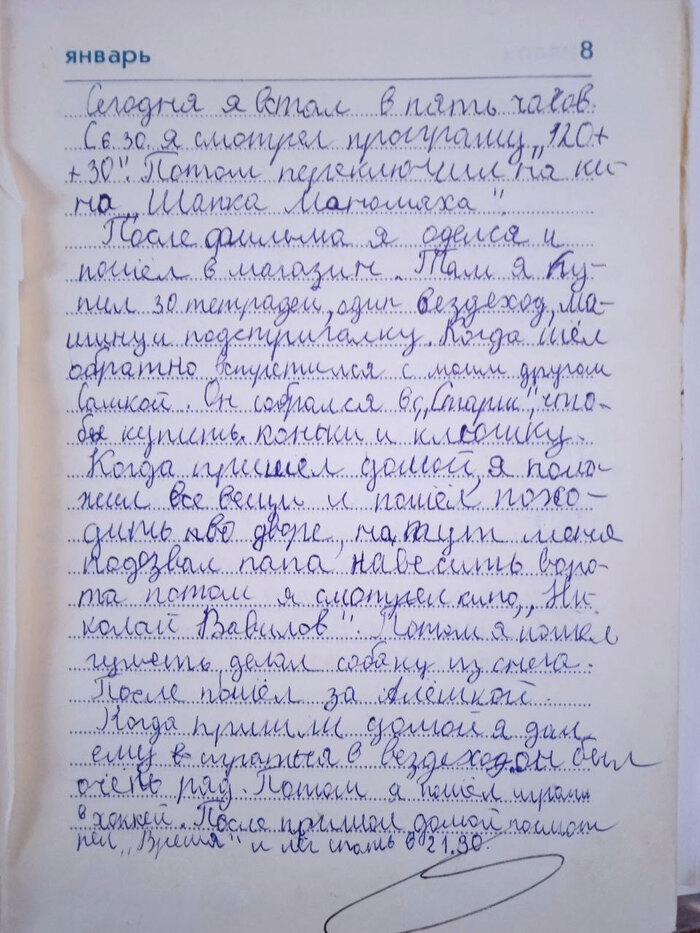 январь 8
Сегодня я встал в пять часов.
С 6.30. я смотрел програму „120+
+30". Потом переключил на ки-
на „Шапка Маномаха".
После фильма я оделся и
пошёл в магазин. Там я ку-
пил 30 тетрадей, один вездеход, ма-
шинци подстригалку. Когда шёл
обратно встретился с моим другом
Сашкой. Он собрался в с. „Старик", что-
бы купить коньки и клюшку.
Когда пришел домой, я поло-
жил все вещи и пошёл похо-
дить по дворе, на тут меня
подозвал папа навесить воро-
та потом я смотрел кино „Ни-
колай Вавилов". Потом я пошел
гулять, делал собаку из снега.
После пошёл за Алёшкой.
Когда пришли домой я дал
ему играться в вездеход он был
очень рад. Потом я пошёл играть
в хоккей. После пришол домой посмот
рел „Время" и лёг спать в 21.30